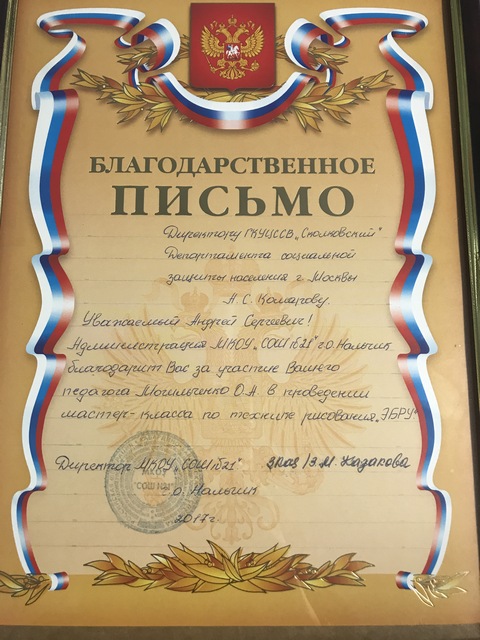 БЛАГОДАРСТВЕННОЕ
ПИСЬМО
Директору ГКУЦССВ „Сколковский"
Департамента социальной
защиты населения г. Москвы
А.С. Комарову.
Уважаемый Андрей Сергеевич!
Администрация МКОУ „СОШ №21" г.о. Нальчик
благодарит Вас за участие Вашего
педагога Могильченко О.А. в проведении
мастер-класса по технике рисования „ЭБРУ"
Директор МКОУ „СОШ №21" З.М. Казакова
"СОШ №21"
г.о. Нальчик
2017г.